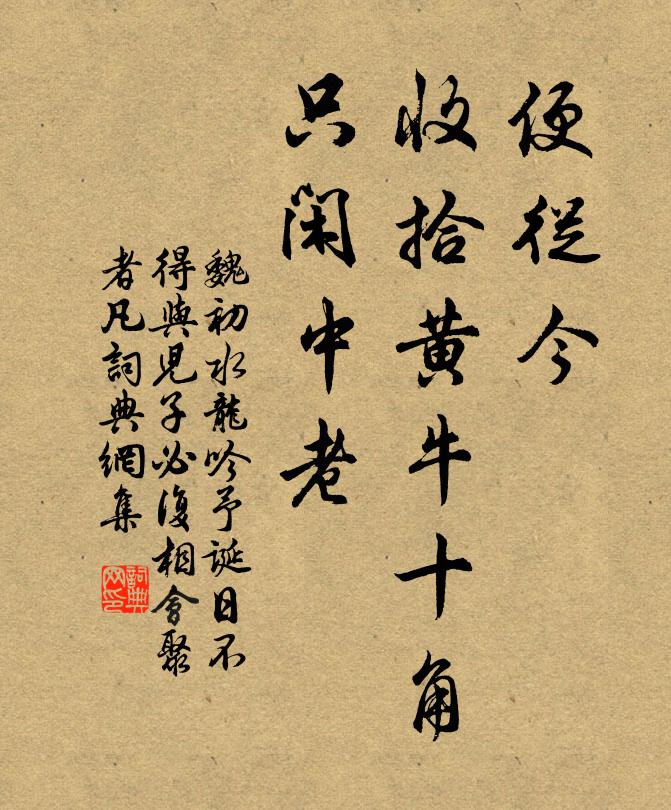 便從今
收拾黃牛十角
只閑中老
魏初水龍吟予誕日不
得與兒子必復相會聚
者凡詞典網集
詞典网印